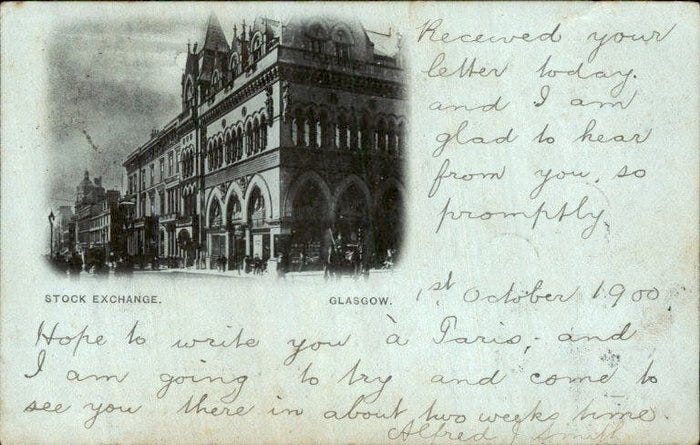 Received your
letter today.
and I am
glad to hear
from you, so
promptly
STOCK EXCHANGE. GLASGOW.
1st October 1900
Hope to write you à Paris, and
I am going to try and come to
see you there in about two weeks time.
Alfred J Smith